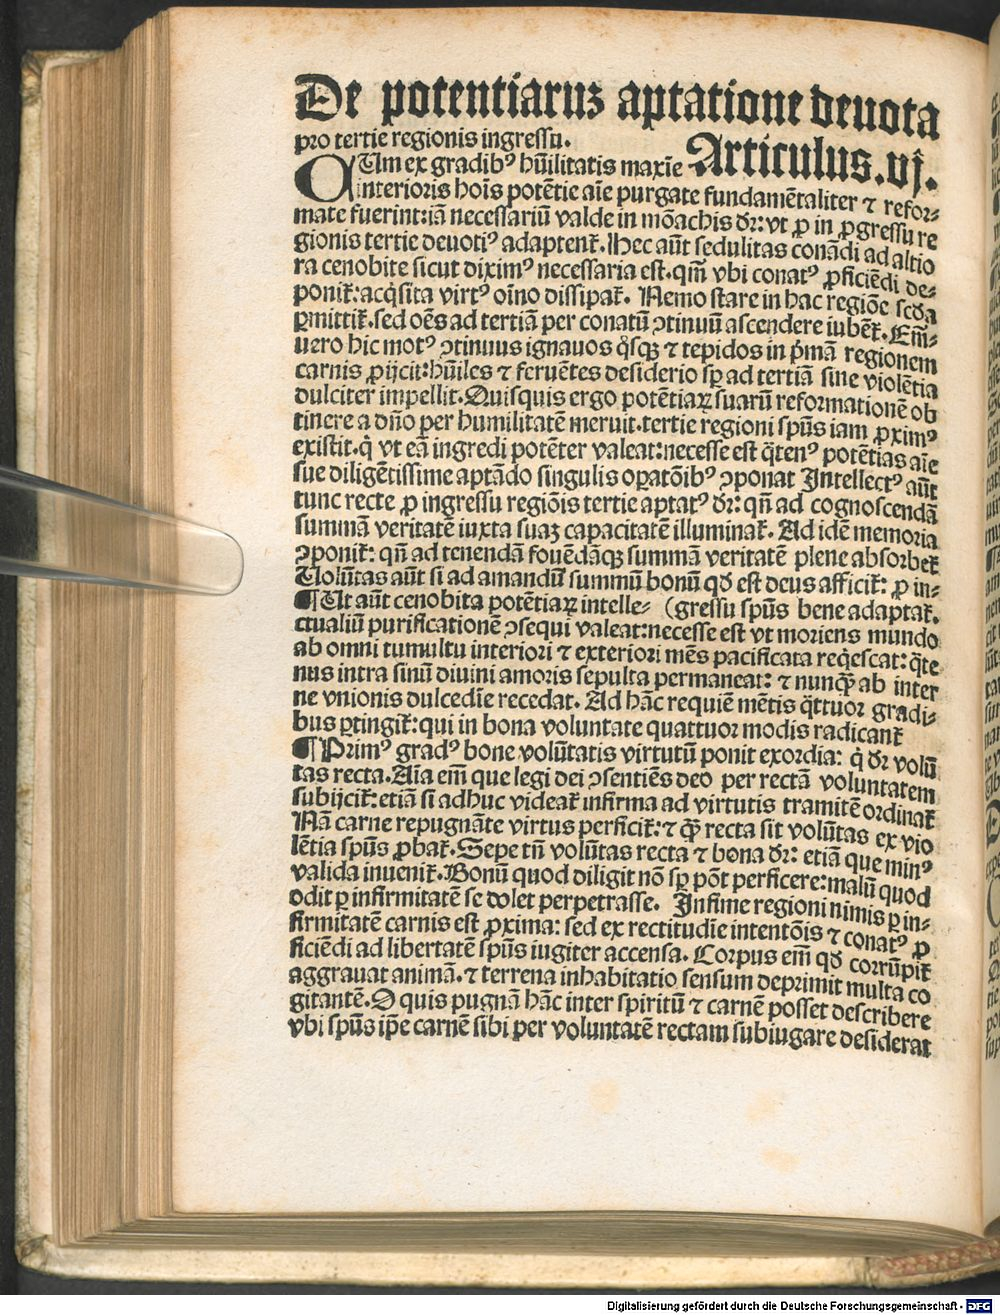 De potentiaruꝫ aptatione deuota
pro tertie regionis ingressu.
Articulus.vj.
QUm ex gradibꝰ hūilitatis maxīe
interioris hoīs potētie aīe purgate fundamētaliter ⁊ refor⸗
mate fuerint:iā necessariū valde in mōachis dr̄: vt ꝓ in ꝓgressu re
gionis tertie deuotiꝰ adaptent᷑. Hec aūt sedulitas conādi ad altio
ra cenobite sicut diximꝰ necessaria est. qm̄ vbi conatꝰ ꝓficiēdi de⸗
ponit᷑:acq̇sita virtꝰ oīno dissipat᷑. Nemo stare in hac regiōe scd̄a
ꝑmittit᷑.sed oēs ad tertiā per conatū ꝯtinuū ascendere iubet᷑. Em̄
uero hic motꝰ ꝯtinuus ignauos q̇sqꝫ ⁊ tepidos in p̄mā regionem
carnis ꝓijcit:hūiles ⁊ feruētes desiderio sꝑ ad tertiā sine violētia
dulciter impellit. Quisquis ergo potētiaꝝ suarū reformationē ob
tinere a dn̄o per humilitatē meruit.tertie regioni spūs iam ꝓximꝰ
existit.q̇ vt eā ingredi potēter valeat:necesse est q̄tenꝰ potētias aīe
sue diligētissime aptādo singulis oꝑatōibꝰ ꝯponat Intellectꝰ aūt
tunc recte ꝓ ingressu regiōis tertie aptatꝰ dr̄: qn̄ ad cognoscendā
summā veritatē iuxta suaꝫ capacitatē illuminat᷑. Ad idē memoria
ꝯponit᷑: qn̄ ad tenendā fouēdāqꝫ summā veritatē plene absorbet᷑
Uolūtas aūt si ad amandū summū bonū qd̄ est deus afficit᷑: ꝓ in⸗
¶Ut aūt cenobita potētiaꝝ intelle⸗ (gressu spūs bene adaptat᷑.
ctualiū purificationē ꝯsequi valeat:necesse est vt moriens mundo
ab omni tumultu interiori ⁊ exteriori mēs pacificata req̇escat: q̄te
nus intra sinū diuini amoris sepulta permaneat: ⁊ nunqꝫ̄ ab inter
ne vnionis dulcedīe recedat. Ad hāc requiē mētis q̄ttuor gradi⸗
bus ꝑtingit᷑:qui in bona voluntate quattuor modis radicant᷑
¶Primꝰ gradꝰ bone volūtatis virtutū ponit exordia: q̇ dr̄ volū
tas recta. Aīa em̄ que legi dei ꝯsentiēs deo per rectā voluntatem
subijcit᷑:etiā si adhuc videat᷑ infirma ad virtutis tramitē ordinat᷑
Nā carne repugnāte virtus perficit᷑:⁊ qꝫ̄ recta sit volūtas ex vio
lētia spūs ꝓbat᷑. Sepe tn̄ volūtas recta ⁊ bona dr̄: etiā que minꝰ
valida inuenit᷑. Bonū quod diligit nō sꝑ pōt perficere:malū quod
odit ꝑ infirmitatē se dolet perpetrasse. Infime regioni nimis ꝑ in⸗
firmitatē carnis est ꝓxima: sed ex rectitudīe intentōis ⁊ conatꝰ ꝓ
ficiēdi ad libertatē spūs iugiter accensa. Corpus em̄ qd̄ corrūpit᷑
aggrauat animā. ⁊ terrena inhabitatio sensum deprimit multa co
gitantē. O quis pugnā hāc inter spiritū ⁊ carnē posset describere
vbi spūs ip̄e carnē sibi per voluntatē rectam subiugare desiderat
Digitalisierung gefördert durch die Deutsche Forschungsgemeinschaft - DFG